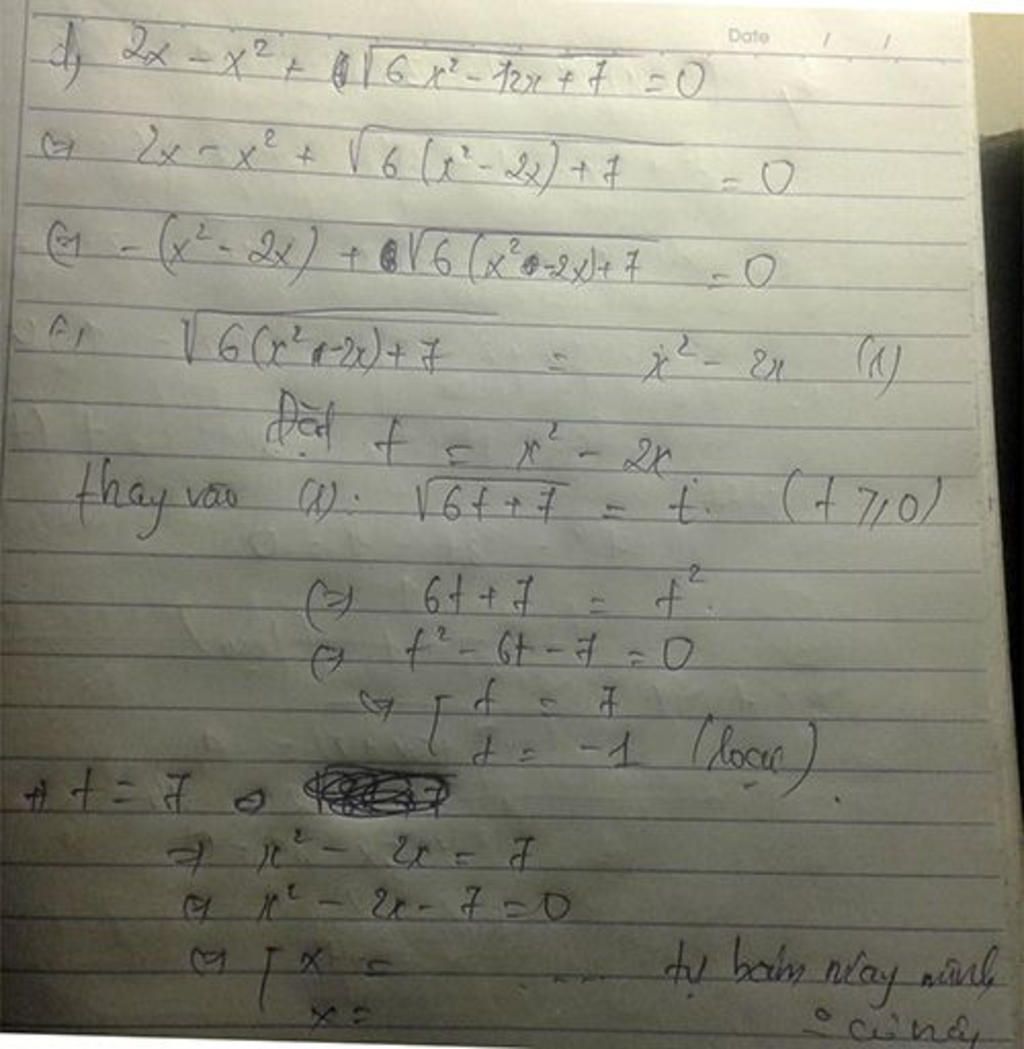 Date / /
d, 2x - x² + √(6x² - 12x + 7) = 0
⇔ 2x - x² + √(6(x² - 2x) + 7) = 0
⇔ - (x² - 2x) + √(6(x² - 2x) + 7) = 0
⇔ √(6(x² - 2x) + 7) = x² - 2x (1)
Đặt t = x² - 2x
thay vào (1): √(6t + 7) = t. (t ≥ 0)
⇔ 6t + 7 = t².
⇔ t² - 6t - 7 = 0
⇔ [ t = 7
t = -1 (loại).
+) t = 7
⇒ x² - 2x = 7
⇔ x² - 2x - 7 = 0
⇔ [ x = .... tự bấm máy
x =